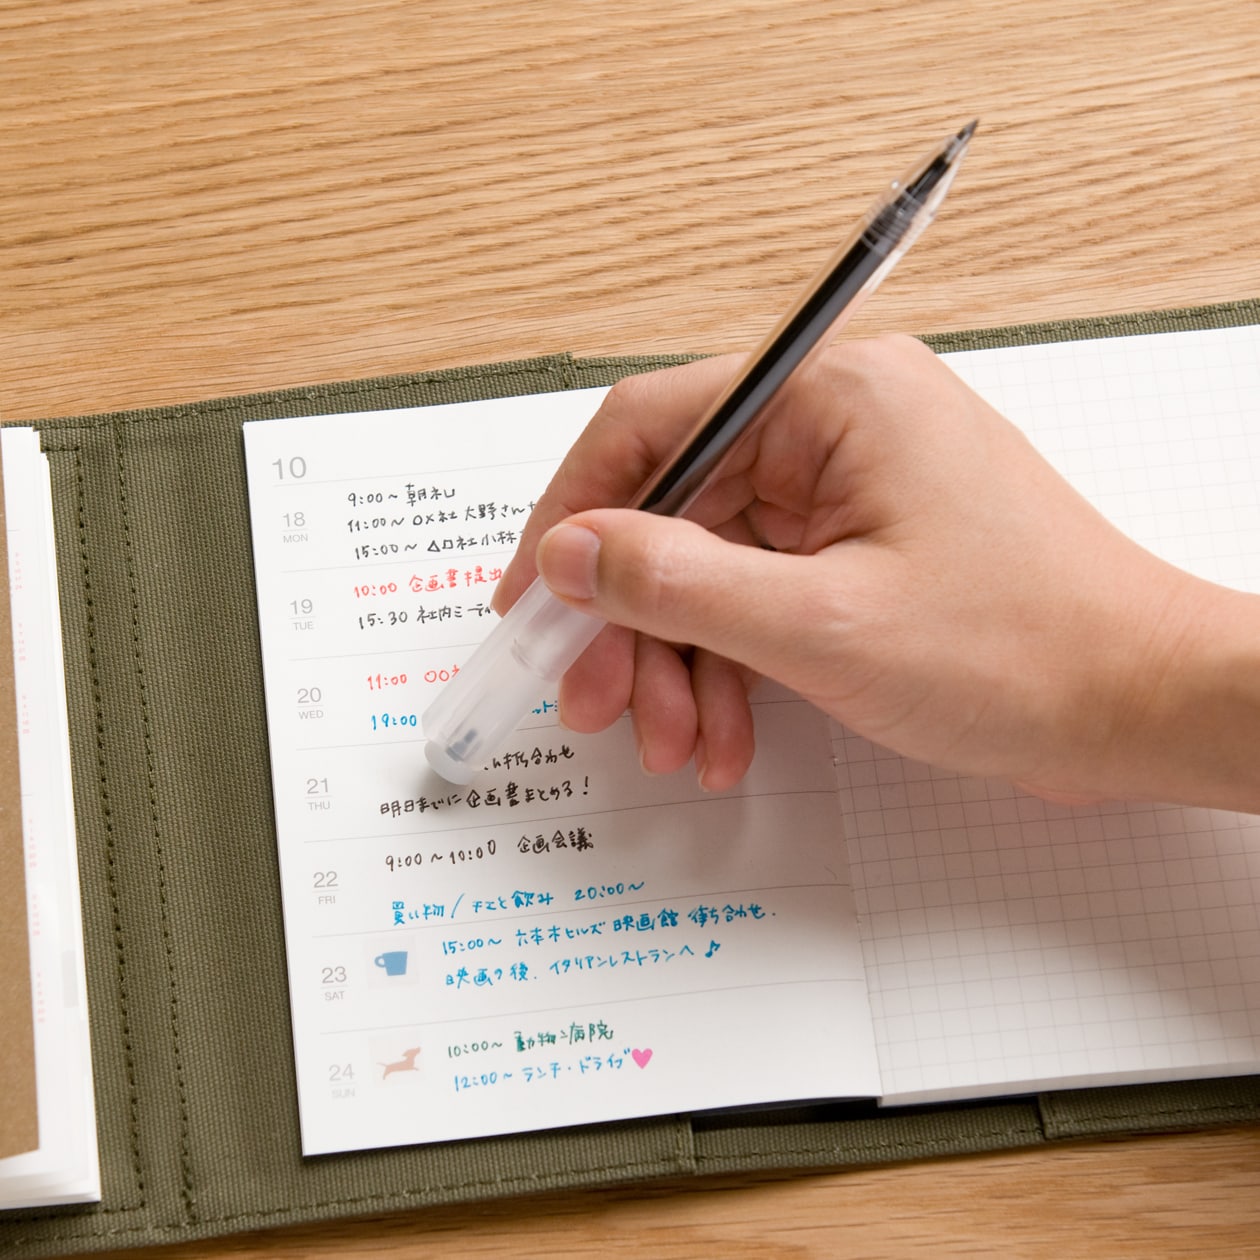 10
18
MON
9:00～朝礼
11:00～ ○×社 大野さん
15:00～ △□社 小林
19
TUE
10:00 企画書提出
15:30 社内ミーティ
20
WED
11:00 ○○
19:00
21
THU
打ち合わせ
明日までに企画書まとめる!
22
FRI
9:00～10:00 企画会議
買い物/チエと飲み 20:00～
23
SAT
15:00～ 六本木ヒルズ 映画館 待ち合わせ.
映画の後、イタリアンレストランへ♪
24
SUN
10:00～ 動物病院
12:00～ ランチ・ドライブ♥